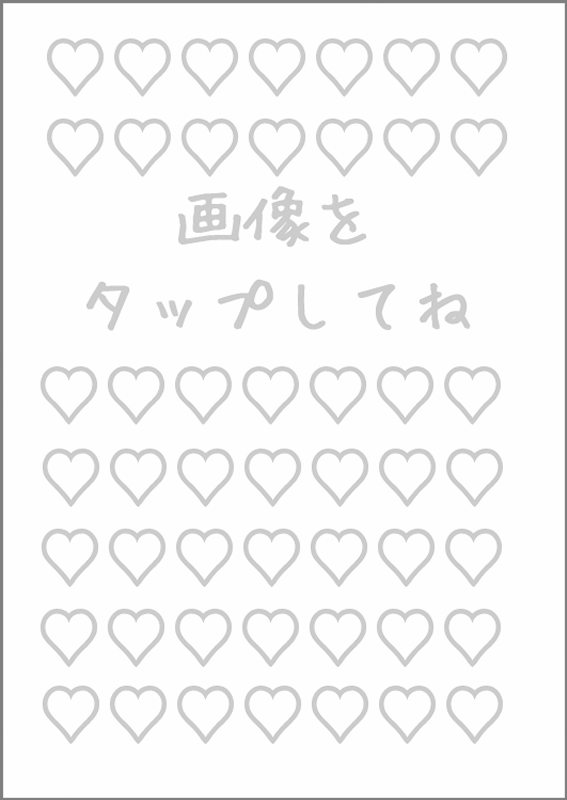 画像を
タップしてね